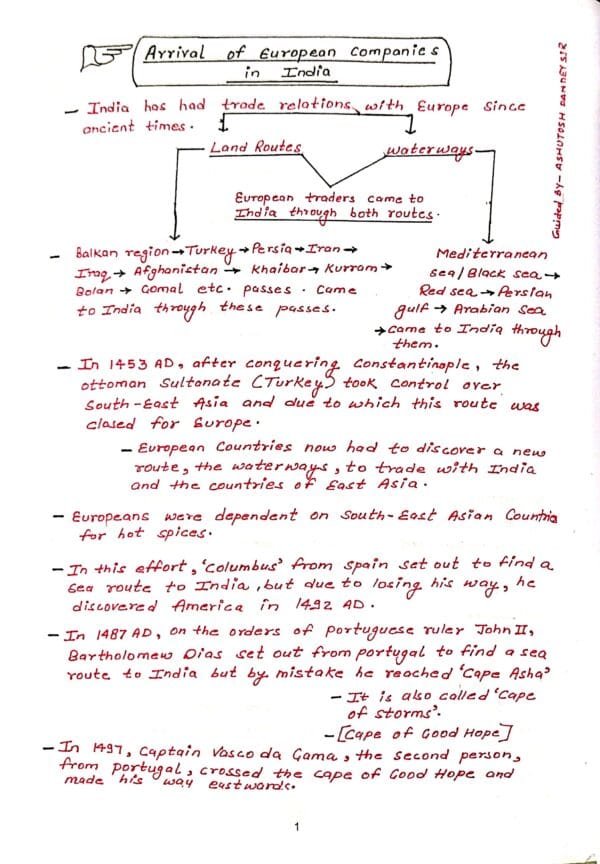 Arrival of European Companies
in India
Guided By- ASHUTOSH PANDEY SIR
- India has had trade relations with Europe since
ancient times.
Land Routes
waterways
European traders came to
India through both routes.
- Balkan region → Turkey → Persia → Iran →
Iraq → Afghanistan → Khaibar → Kurram →
Bolan → Gomal etc. passes. Came
to India through these passes.
Mediterranean
sea/Black sea →
Red sea → Persian
gulf → Arabian sea
→ came to India through
them.
- In 1453 AD, after conquering Constantinople, the
ottoman Sultonate (Turkey) took control over
South-East Asia and due to which this route was
closed for Europe.
- European Countries now had to discover a new
route, the waterways, to trade with India
and the countries of East Asia.
- Europeans were dependent on South-East Asian Countria
for hot spices.
- In this effort, 'Columbus' from spain set out to find a
sea route to India, but due to losing his way, he
discovered America in 1492 AD.
- In 1487 AD, on the orders of portuguese ruler John II,
Bartholomew Dias set out from portugal to find a sea
route to India but by mistake he reached 'Cape Asha'
- It is also called 'Cape
of storms'.
- [Cape of Good Hope]
- In 1497, Captain Vasco da Gama, the second person,
from portugal, crossed the cape of Good Hope and
made his way eastwards.
1